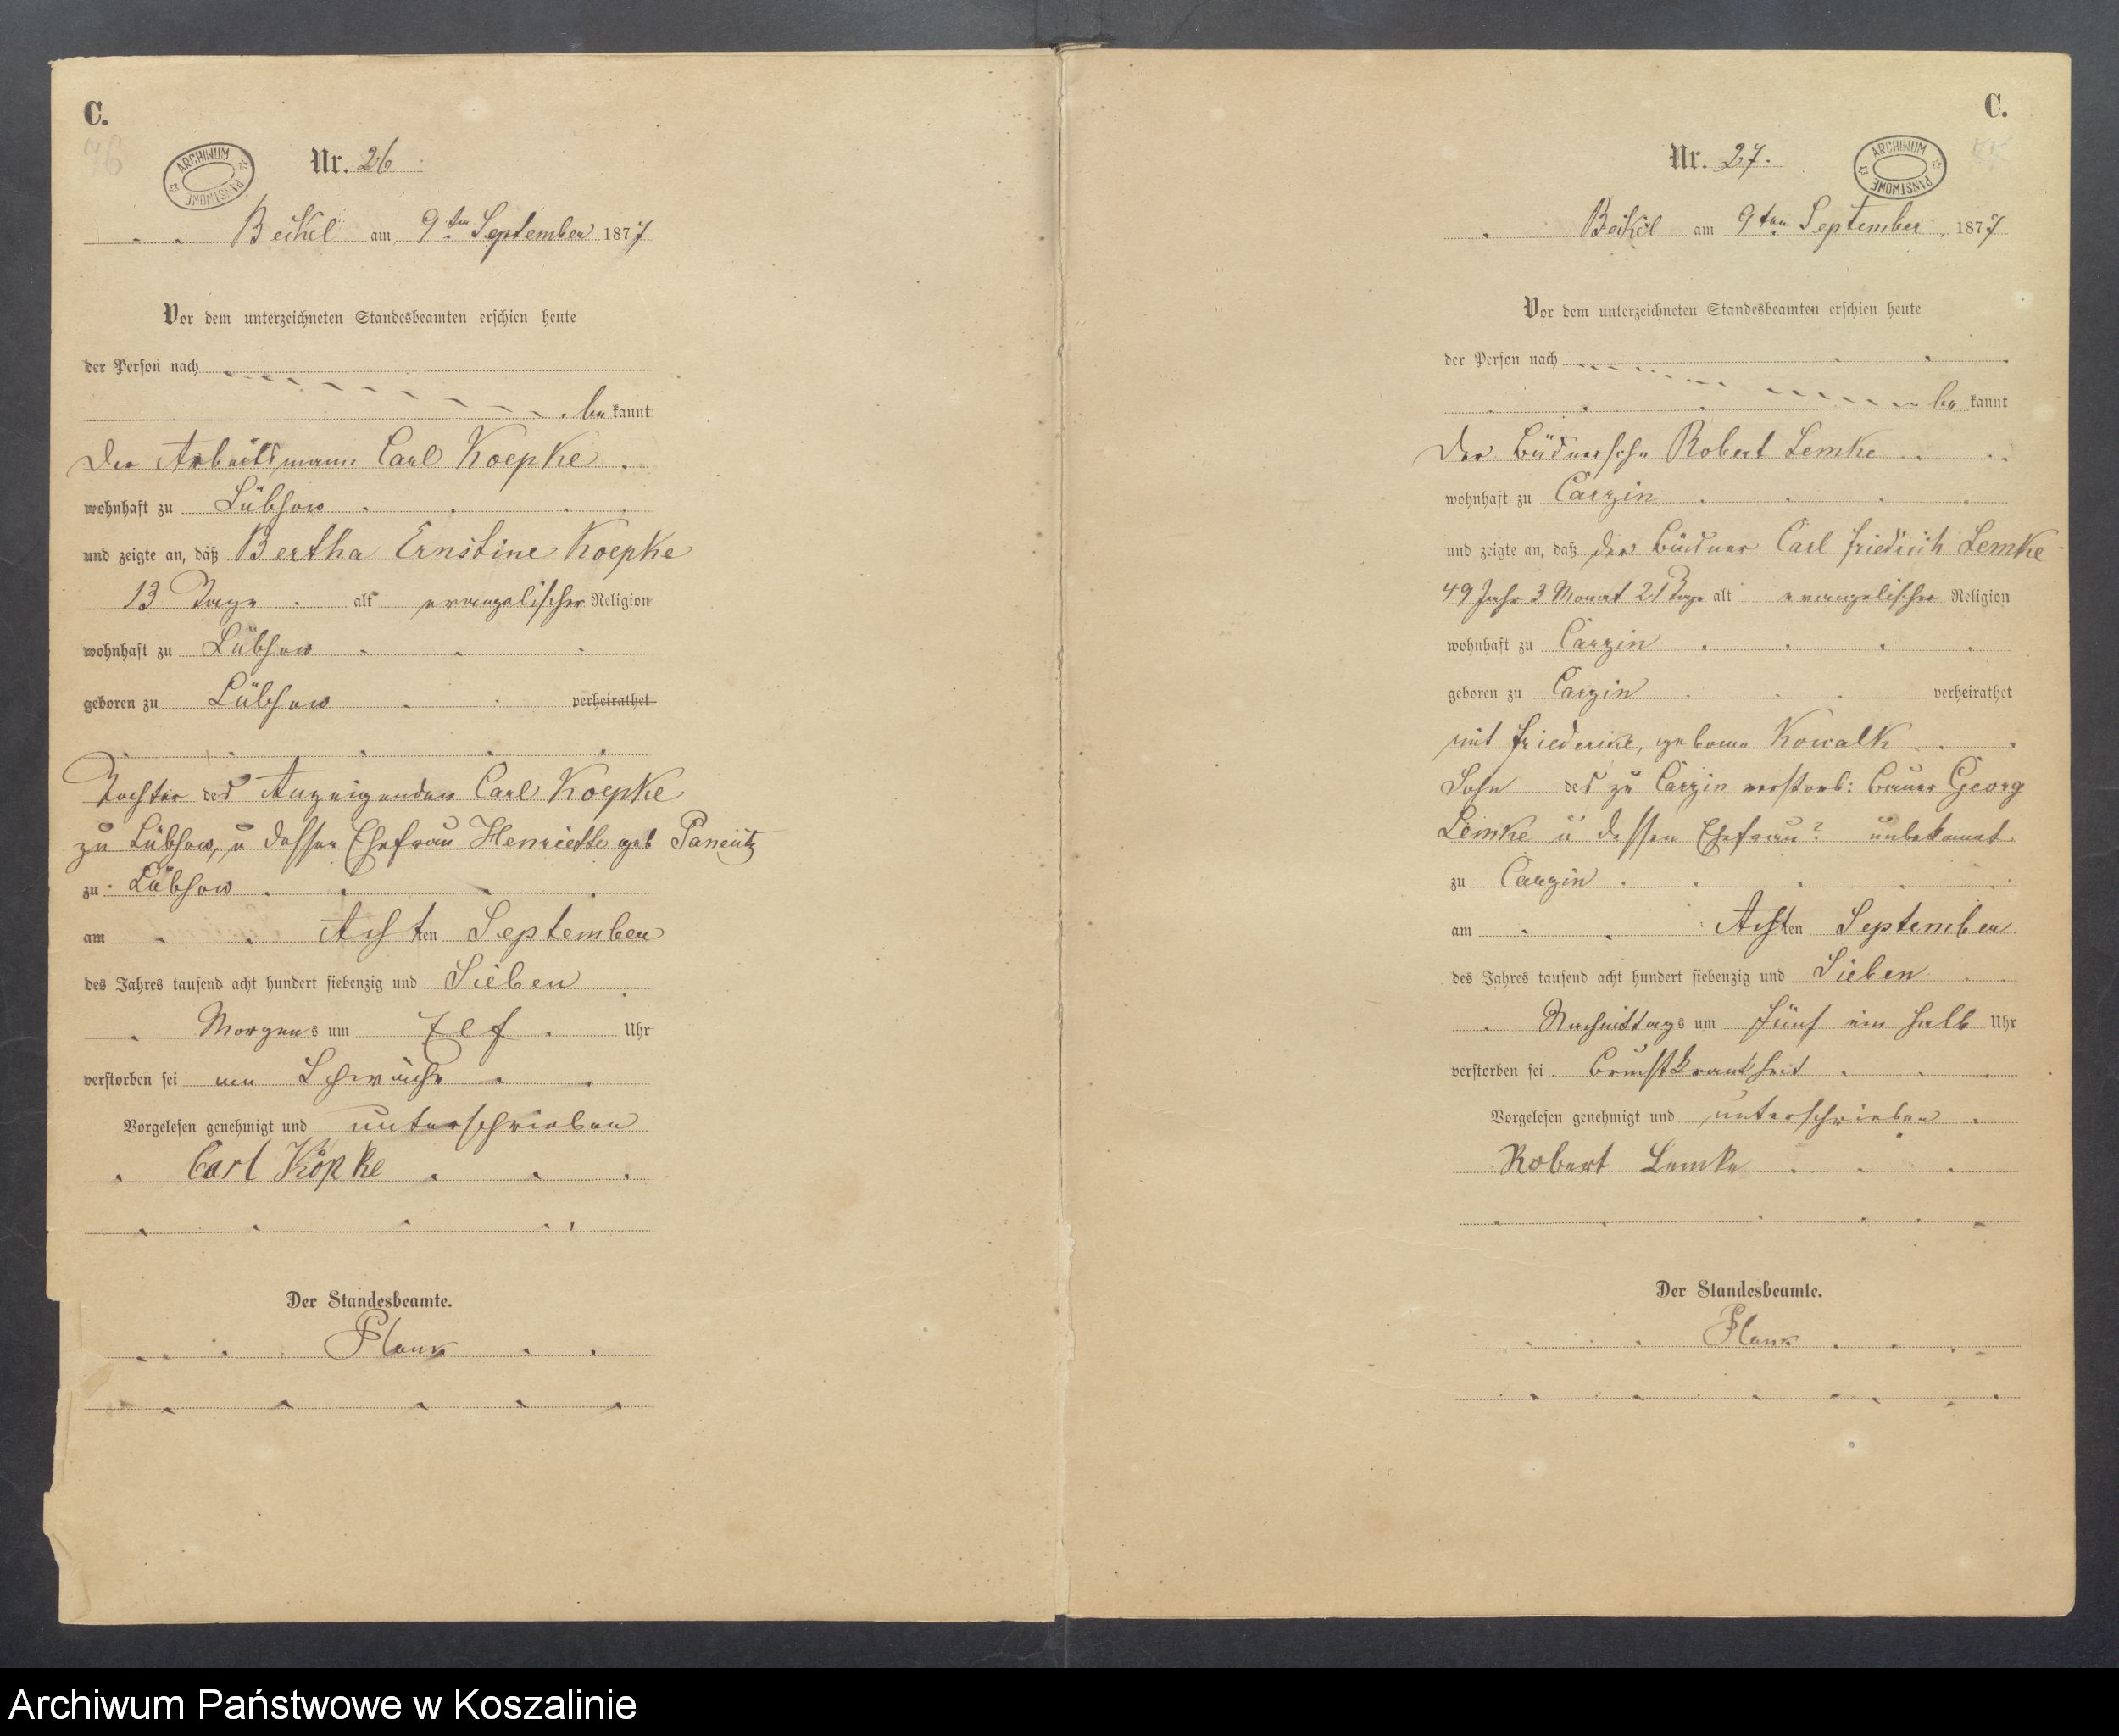 C.
76
ARCHIWUM PAŃSTWOWE
Nr. 26
Beikel am 9ten September 1877
Vor dem unterzeichneten Standesbeamten erschien heute
der Person nach
be kannt
Der Arbeitsmann Carl Koepke
wohnhaft zu Lübsow
und zeigte an, daß Bertha Ernstine Koepke
13 Tage alt evangelischer Religion
wohnhaft zu Lübsow
geboren zu Lübsow verheirathet
Tochter des Anzeigenden Carl Koepke
zu Lübsow, u dessen Ehefrau Henriette geb
zu Lübsow
am Achten September
des Jahres tausend acht hundert siebenzig und Sieben
Morgens um Elf Uhr
verstorben sei an Schwäche
Vorgelesen genehmigt und unterschrieben
Carl Köpke
Der Standesbeamte.
C.
Nr. 27.
ARCHIWUM PAŃSTWOWE
Beikel am 9ten September 1877
Vor dem unterzeichneten Standesbeamten erschien heute
der Person nach
be kannt
Der Robert Lemke
wohnhaft zu Carzin
und zeigte an, daß der Büdner Carl Friedrich Lemke
49 Jahr 3 Monat 21 Tage alt evangelischer Religion
wohnhaft zu Carzin
geboren zu Carzin verheirathet
mit Friederike, geborne Kowalk
Sohn des zu Carzin verstorb: Bauer Georg
Lemke u dessen Ehefrau? unbekannt
zu Carzin
am Achten September
des Jahres tausend acht hundert siebenzig und Sieben
Nachmittags um fünf ein halb Uhr
verstorben sei Brustkrankheit
Vorgelesen genehmigt und unterschrieben
Robert Lemke
Der Standesbeamte.
Archiwum Państwowe w Koszalinie